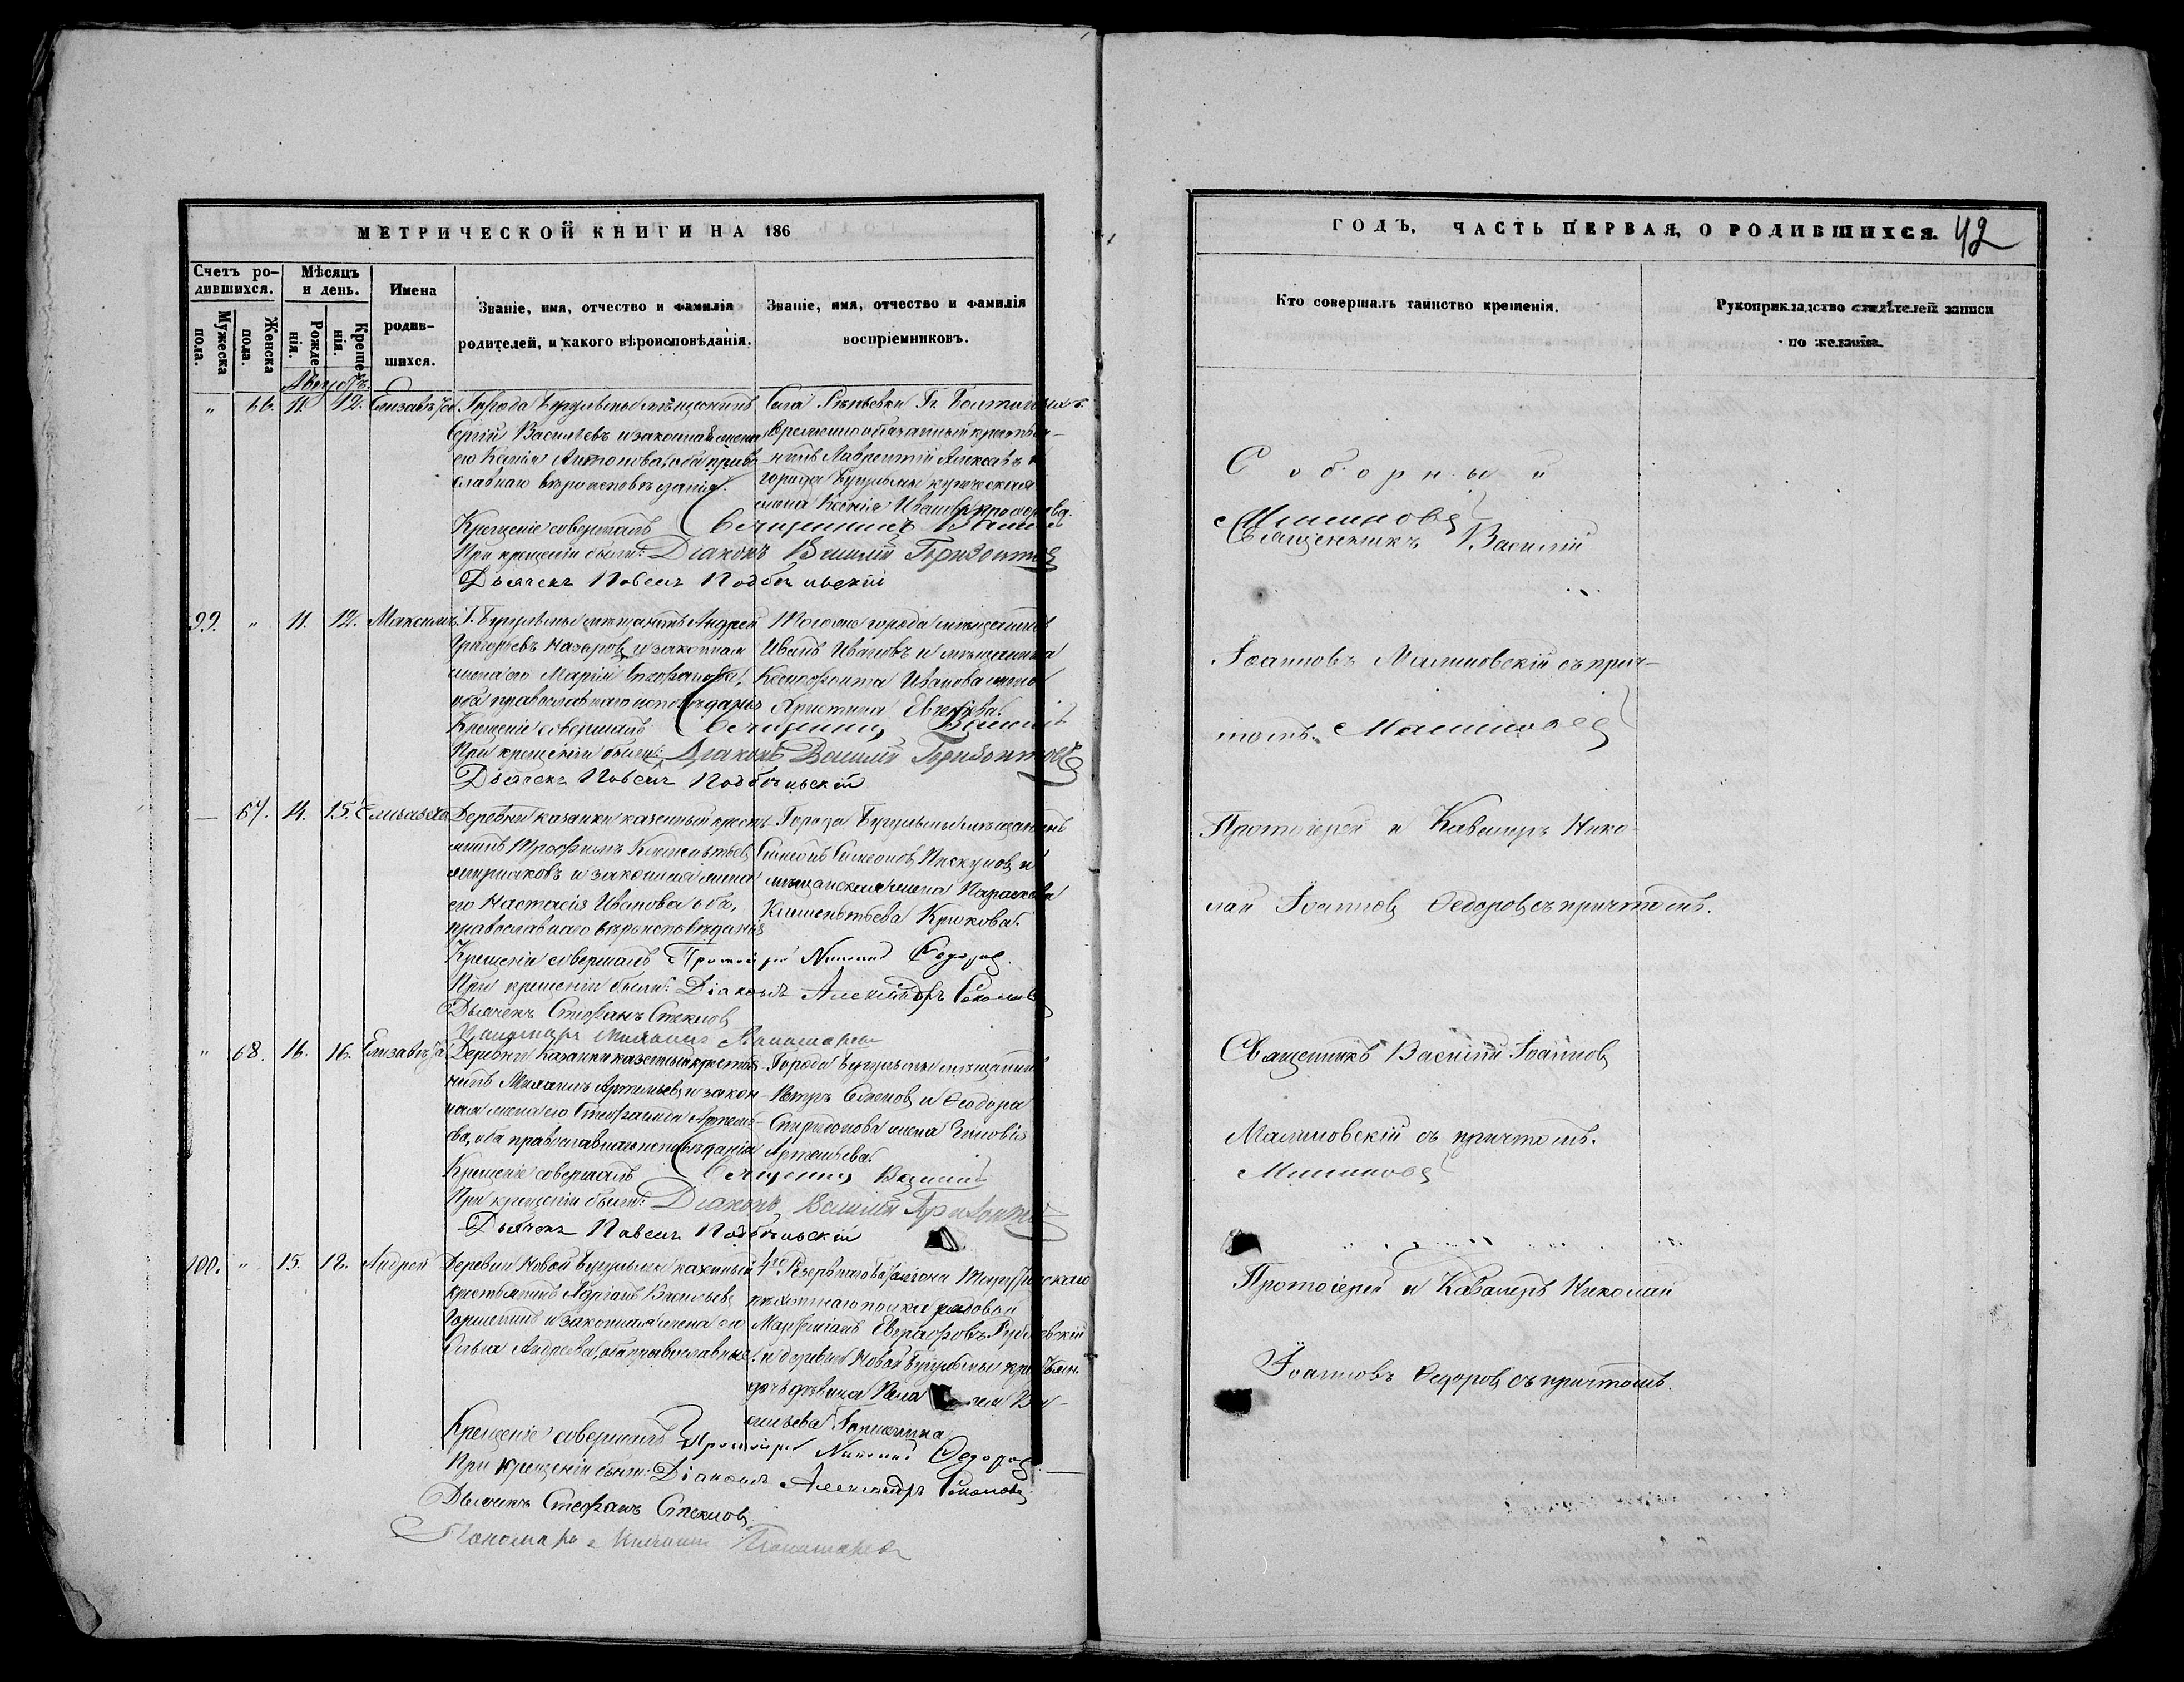 МЕТРИЧЕСКОЙ КНИГИ НА 186
Счетъ ро-
дившихся.
Мѣсяцъ
и день.
Имена
родив-
шихся.
Званіе, имя, отчество и фамилія
родителей, и какого вѣроисповѣданія.
Званіе, имя, отчество и фамилія
воспріемниковъ.
Мужеска
пола.
Женска
пола.
Рожде
нія.
Креще
нія.
Августъ.
" 66. 11. 12. Елизавета
Города Бугульмы мѣщанинъ
Сергій Васильевъ и законная жена
его Ксенія Антонова, оба право
славнаго вѣроисповѣданія.
Села
временнообязанный крестья-
нинъ Лаврентій Алексѣевъ и
города Бугульмы купеческая
жена Ксенія Иванова
Крещеніе совершалъ Священникъ Василій
При крещеніи были: Діаконъ Василій Горизонтовъ
Дьячекъ Павелъ Подбѣльскій
99. " 11. 12. Максимъ
Г. Бугульмы мѣщанинъ Андрей
Григорьевъ Назаровъ и законная
жена его Марія Стефанова,
оба православнаго исповѣданія
Тогоже города мѣщанинъ
Иванъ Ивановъ и мѣщанина
Ксенофонта Иванова жена
Христина
Крещеніе совершалъ Священникъ Василій
При крещеніи были: Діаконъ Василій Горизонтовъ
Дьячекъ Павелъ Подбѣльскій
— 67. 14. 15. Елизавета
Деревни казанки казенный крестья
нинъ Трофимъ Климентьевъ
и законная жена
его Настасія Иванова оба,
православнаго вѣроисповѣданія
Города Бугульмы мѣщанинъ
Симеонъ Симеоновъ Пискуновъ и
мѣщанская жена Параскева
Климентьева Крюкова.
Крещеніе совершалъ Протоіерей Николай Федоровъ.
При крещеніи были: Діаконъ Александръ Соколовъ
Дьячекъ Стефанъ Стекловъ
Пономарь Михаилъ Пономаревъ
" 68. 16. 16. Елизавета
Деревни Казанки казенный крестья
нинъ Михаилъ Артемьевъ и закон
ная жена его Стефанида Артемь
ева, оба православнаго исповѣданія
Города Бугульмы мѣщанинъ
Петръ Семеновъ и Феодора
Спиридонова жена Зиновія
Артемьева.
Крещеніе совершалъ Священникъ Василій
При крещеніи были: Діаконъ Василій Горизонтовъ
Дьячекъ Павелъ Подбѣльскій
100. " 15. 18. Андрей
Деревни Новой Бугульмы казенный
крестьянинъ Адріанъ Васильевъ
Горшенинъ и законная жена его
Ольга Андреева, оба православные.
4го Резервнаго баталіона
пѣхотнаго полка рядовой
и деревни Новой Бугульмы крестьян.
дочь дѣвица
сильева Горшенина
Крещеніе совершалъ Протоіерей Николай Федоровъ
При крещеніи были: Діаконъ Александръ Соколовъ
Дьячекъ Стефанъ Стекловъ
Пономарь Михаилъ Пономаревъ
ГОДЪ, ЧАСТЬ ПЕРВАЯ, О РОДИВШИХСЯ. 42
Кто совершалъ таинство крещенія.
Рукоприкладство свидѣтелей записи
по желанію.
Соборный
Малиновскій
Священникъ Василій
Іоанновъ Малиновскій съ прич-
томъ. Малиновскій
Протоіерей и Кавалеръ Нико-
лай Іоанновъ Федоровъ съ причтомъ.
Священникъ Василій Іоанновъ
Малиновскій съ причтомъ.
Малиновскій
Протоіерей и Кавалеръ Николай
Іоанновъ Федоровъ съ причтомъ.